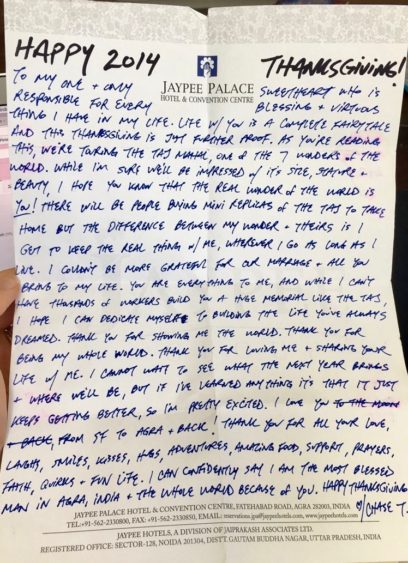 HAPPY 2014 THANKSGIVING!
JAYPEE PALACE
HOTEL & CONVENTION CENTRE
TO MY ONE + ONLY SWEETHEART WHO IS
RESPONSIBLE FOR EVERY BLESSING + VIRTUOUS
THING I HAVE IN MY LIFE. LIFE W/ YOU IS A COMPLETE FAIRYTALE
AND THIS THANKSGIVING IS JUST FURTHER PROOF. AS YOU'RE READING
THIS, WE'RE TOURING THE TAJ MAHAL, ONE OF THE 7 WONDERS OF THE
WORLD. WHILE I'M SURE WE'LL BE IMPRESSED W/ IT'S SIZE, STATURE +
BEAUTY, I HOPE YOU KNOW THAT THE REAL WONDER OF THE WORLD IS
YOU! THERE WILL BE PEOPLE BUYING MINI REPLICAS OF THE TAJ TO TAKE
HOME BUT THE DIFFERENCE BETWEEN MY WONDER + THEIRS IS I
GET TO KEEP THE REAL THING W/ ME, WHEREVER I GO AS LONG AS I
LIVE. I COULDN'T BE MORE GRATEFUL FOR OUR MARRIAGE + ALL YOU
BRING TO MY LIFE. YOU ARE EVERYTHING TO ME, AND WHILE I CAN'T
HAVE THOUSANDS OF WORKERS BUILD YOU A HUGE MEMORIAL LIKE THE TAJ,
I HOPE I CAN DEDICATE MYSELF TO BUILDING THE LIFE YOU'VE ALWAYS
DREAMED. THANK YOU FOR SHOWING ME THE WORLD. THANK YOU FOR
BEING MY WHOLE WORLD. THANK YOU FOR LOVING ME + SHARING YOUR
LIFE W/ ME. I CANNOT WAIT TO SEE WHAT THE NEXT YEAR BRINGS
+ WHERE WE'LL BE, BUT IF I'VE LEARNED ANYTHING IT'S THAT IT JUST
KEEPS GETTING BETTER, SO I'M PRETTY EXCITED. I LOVE YOU TO THE MOON
+ BACK, FROM SF TO AGRA + BACK! THANK YOU FOR ALL YOUR LOVE,
LAUGHS, SMILES, KISSES, HUGS, ADVENTURES, AMAZING FOOD, SUPPORT, PRAYERS,
FAITH, QUIRKS + FUN LIFE. I CAN CONFIDENTLY SAY I AM THE MOST BLESSED
MAN IN AGRA, INDIA + THE WHOLE WORLD BECAUSE OF YOU. HAPPY THANKSGIVING
♡/CHASE T.
JAYPEE PALACE HOTEL & CONVENTION CENTRE, FATEHABAD ROAD, AGRA 282003, INDIA
TEL:+91-562-2330800, FAX: +91-562-2330850, EMAIL: reservations.jpa@jaypeehotels.com, www.jaypeehotels.com
JAYPEE HOTELS, A DIVISION OF JAIPRAKASH ASSOCIATES LTD.
REGISTERED OFFICE: SECTOR-128, NOIDA 201304, DISTT. GAUTAM BUDDHA NAGAR, UTTAR PRADESH, INDIA